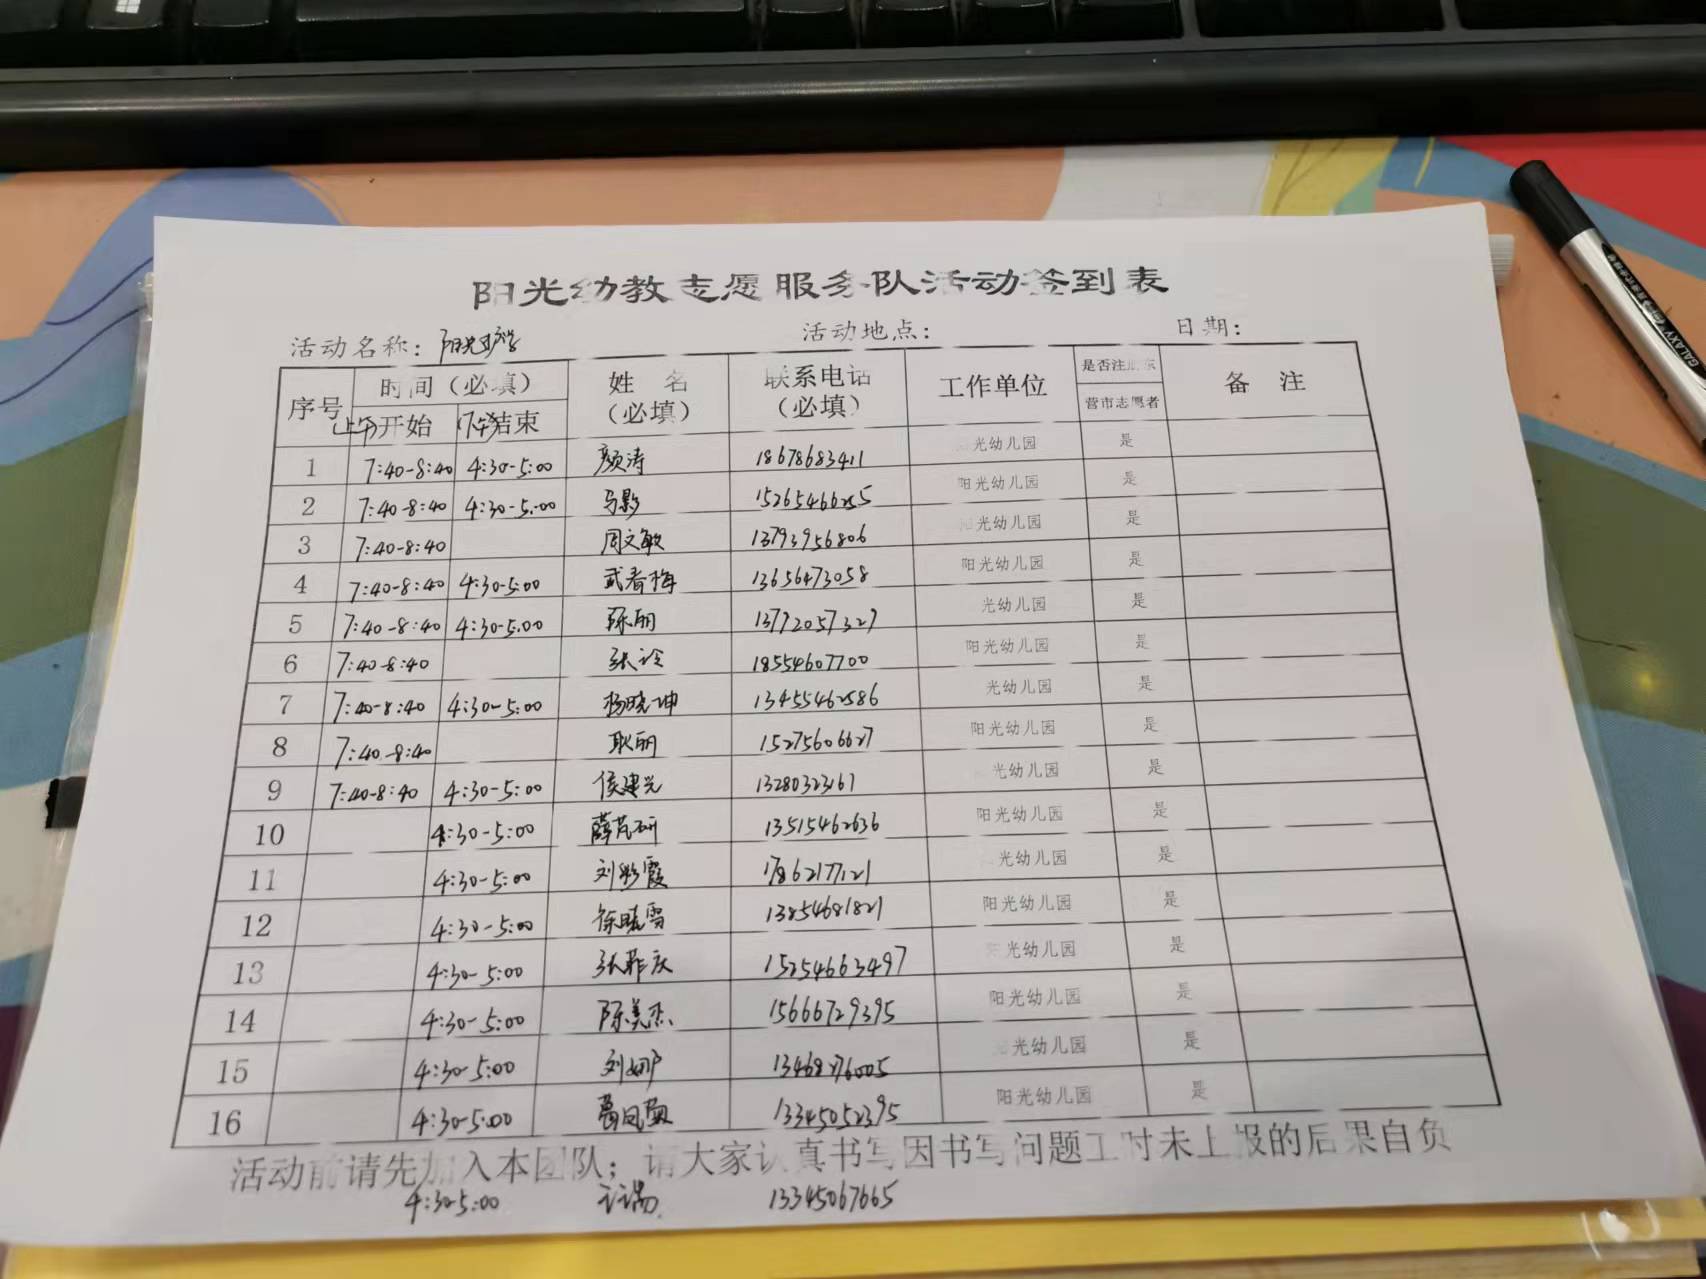 阳光幼教志愿服务队活动签到表
活动名称：阳光护学 活动地点： 日期：
序号 时间（必填） 姓 名（必填） 联系电话（必填） 工作单位 是否注册东营市志愿者 备 注
上午开始 下午结束
1 7:40-8:40 4:30-5:00 颜涛 18678683411 光幼儿园 是
2 7:40-8:40 4:30-5:00 马影 15265466255 阳光幼儿园 是
3 7:40-8:40 周文敏 13793956806 阳光幼儿园 是
4 7:40-8:40 4:30-5:00 武春梅 13656473058 阳光幼儿园 是
5 7:40-8:40 4:30-5:00 陈丽 13772057327 光幼儿园 是
6 7:40-8:40 张玲 18554607700 阳光幼儿园 是
7 7:40-8:40 4:30-5:00 杨晓坤 13455462586 光幼儿园 是
8 7:40-8:40 耿丽 15275606627 阳光幼儿园 是
9 7:40-8:40 4:30-5:00 侯建光 13280323161 光幼儿园 是
10 4:30-5:00 薛芃研 13515462636 阳光幼儿园 是
11 4:30-5:00 刘彩霞 17862177121 光幼儿园 是
12 4:30-5:00 徐晓雪 13854681821 阳光幼儿园 是
13 4:30-5:00 张菲庆 15254663497 光幼儿园 是
14 4:30-5:00 陈美杰 15666729395 阳光幼儿园 是
15 4:30-5:00 刘娜 13468276005 光幼儿园 是
16 4:30-5:00 葛凤 13345052395 阳光幼儿园 是
活动前请先加入本团队；请大家认真书写因书写问题工时未上报的后果自负
4:30-5:00 13345067665
GALAXY